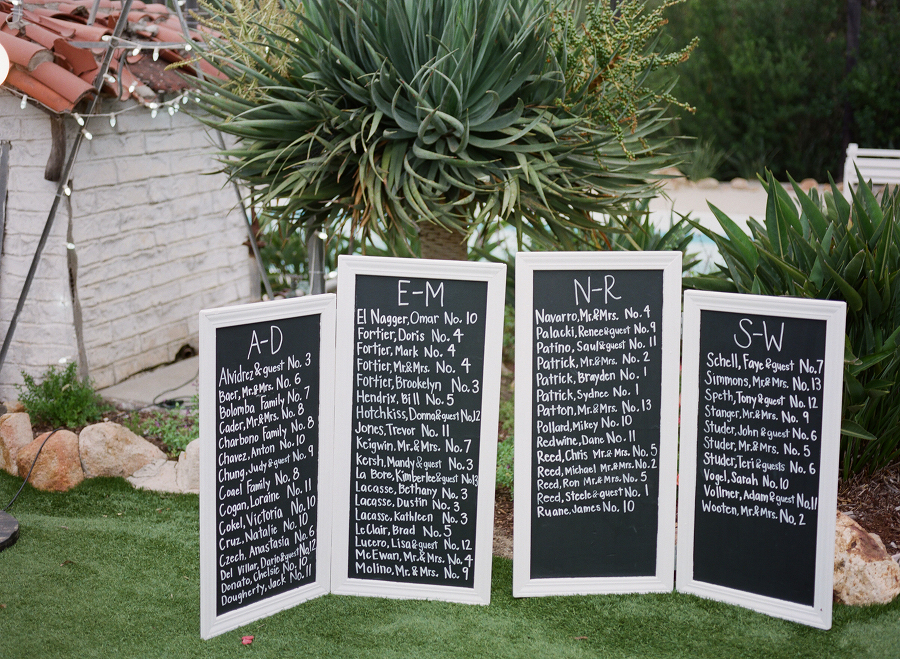 A-D
Alvidrez & guest No. 3
Baer, Mr. & Mrs. No. 6
Bolomba Family No. 7
Cader, Mr. & Mrs. No. 8
Charbono Family No. 8
Chavez, Anton No. 10
Chung, Judy & guest No. 9
Coael Family No. 8
Cogan, Loraine No. 11
Cokel, Victoria No. 10
Cruz, Natalie No. 10
Czech, Anastasia No. 6
Del Villar, Dario & guest No. 12
Donato, Chelsie No. 10
Dougherty, Jack No. 11
E-M
El Nagger, Omar No. 10
Fortier, Doris No. 4
Fortier, Mark No. 4
Fortier, Mr. & Mrs. No. 4
Fortier, Brooklyn No. 3
Hendrix, Bill No. 5
Hotchkiss, Donna & guest No. 12
Jones, Trevor No. 11
Keigwin, Mr. & Mrs. No. 7
Kersh, Mandy & guest No. 3
La Bore, Kimberlee & guest No. 13
Lacasse, Bethany No. 3
Lacasse, Dustin No. 3
Lacasse, Kathleen No. 3
LeClair, Brad No. 5
Lucero, Lisa & guest No. 12
McEwan, Mr. & Mrs. No. 4
Molino, Mr. & Mrs. No. 9
N-R
Navarro, Mr. & Mrs. No. 4
Palacki, Renee & guest No. 9
Patino, Saul & guest No. 11
Patrick, Mr. & Mrs. No. 2
Patrick, Brayden No. 1
Patrick, Sydney No. 1
Patton, Mr. & Mrs. No. 13
Pollard, Mikey No. 10
Redwine, Dane No. 11
Reed, Chris Mr. & Mrs. No. 5
Reed, Michael Mr. & Mrs. No. 2
Reed, Ron Mr. & Mrs. No. 5
Reed, Steele & guest No. 1
Ruane, James No. 10
S-W
Schell, Faye & guest No. 7
Simmons, Mr. & Mrs. No. 13
Speth, Tony & guest No. 12
Stanger, Mr. & Mrs. No. 9
Studer, John & guest No. 6
Studer, Mr. & Mrs. No. 5
Studer, Teri & guests No. 6
Vogel, Sarah No. 10
Vollmer, Adam & guest No. 11
Wooten, Mr. & Mrs. No. 2